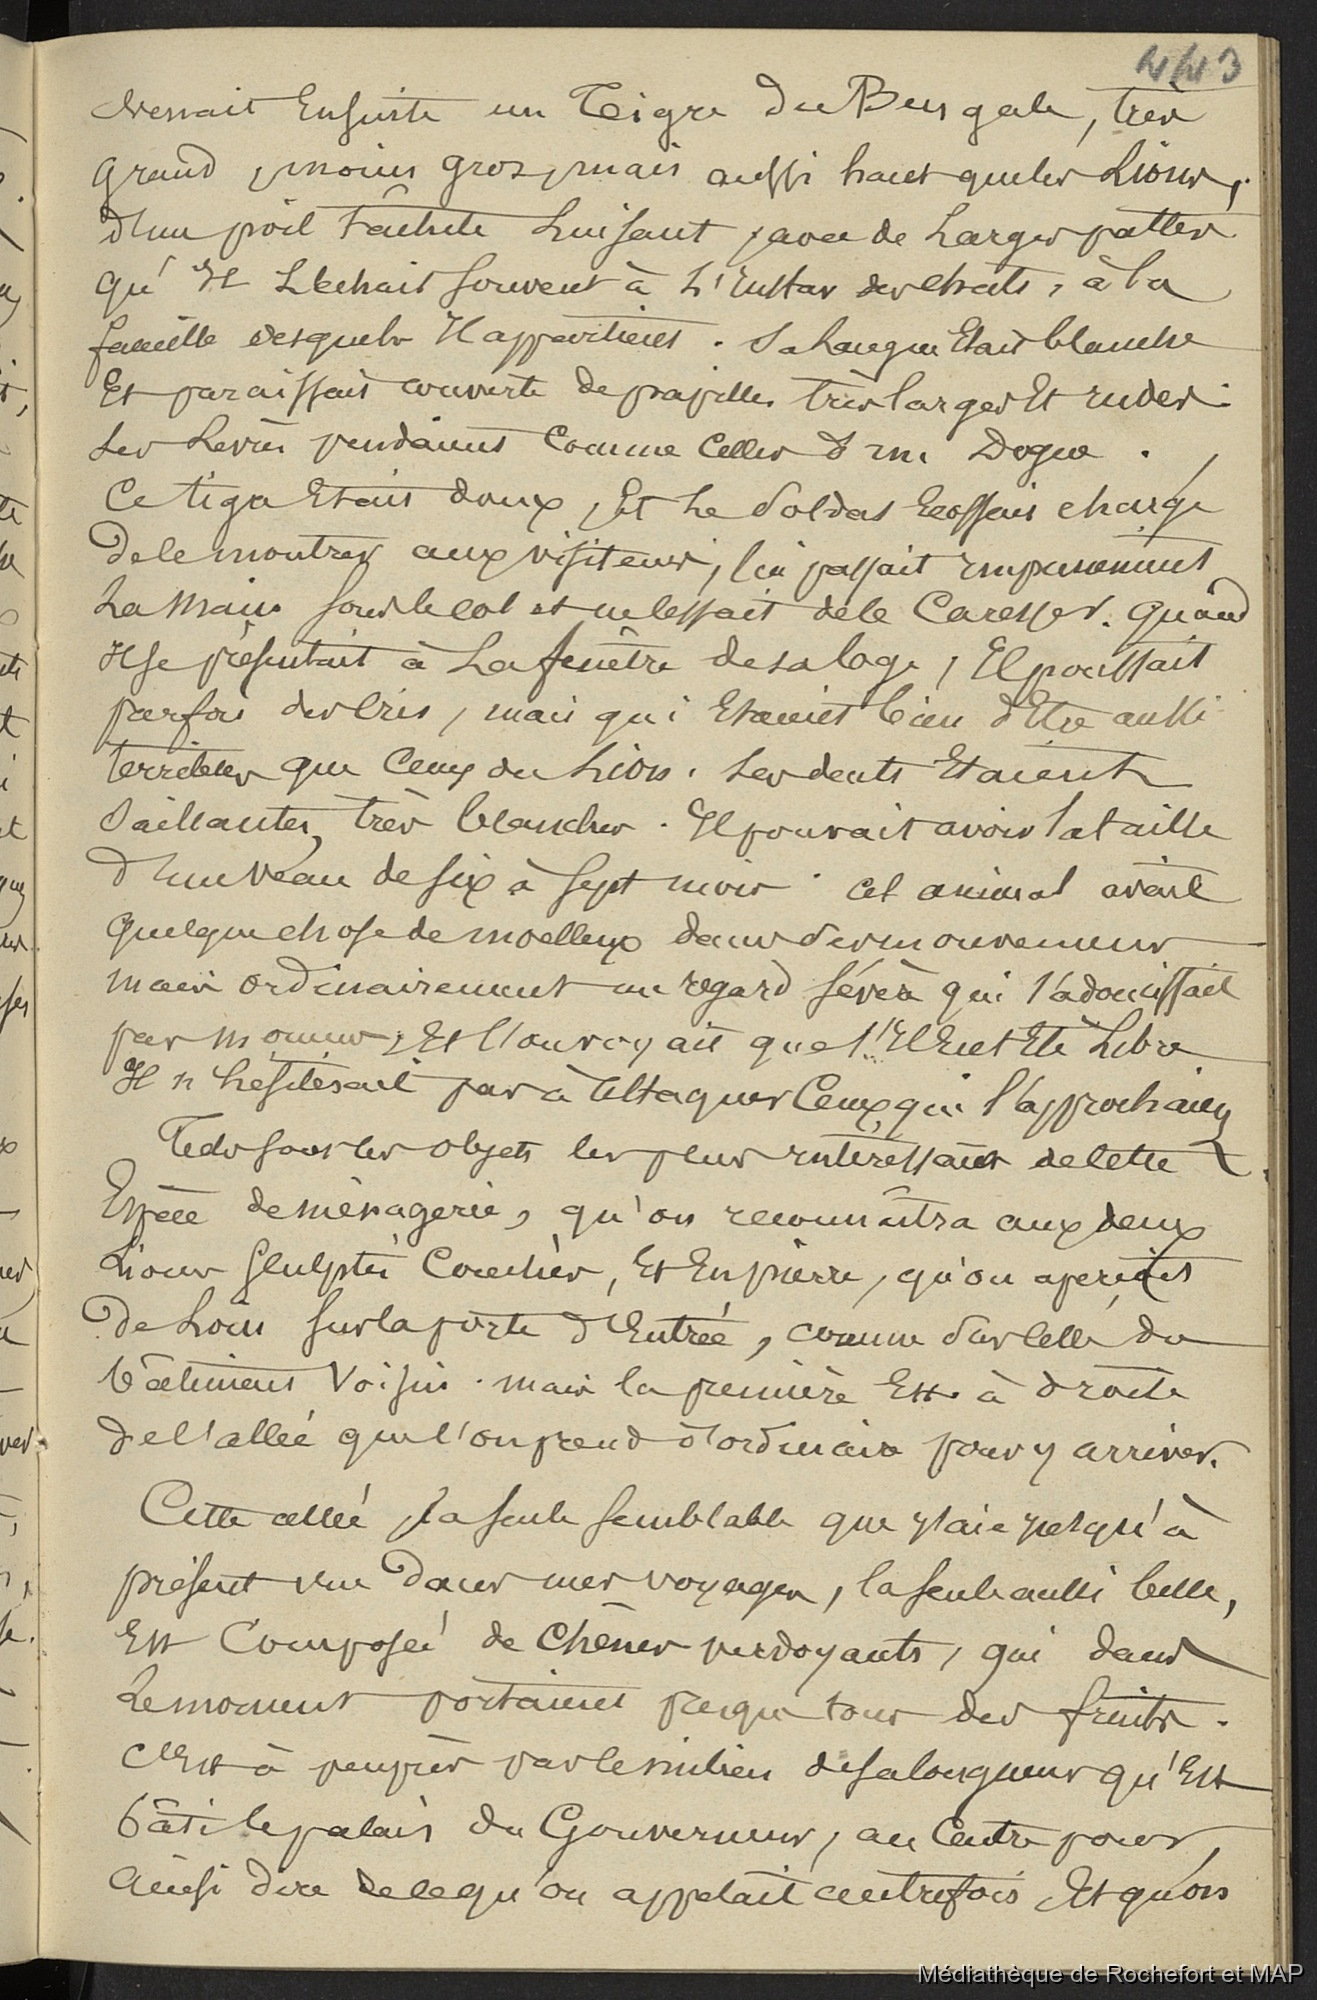 443
Venait Ensuite un Tigre du Bengale, très
grand, moins gros, mais aussi haut que les Lions,
d'un poil tacheté luisant, avec de Larges pattes
qu'Il Léchait souvent à L'Instar des chats, à la
famille desquels Il appartient. Sa Langue Etait blanche
Et paraissait couverte de papilles très larges Et rudes.
Ses Lèvres pendaient Comme Celles d'un Dogue.
Ce tigre Etait doux, Et Le Soldat Ecossais chargé
de le montrer aux visiteurs, lui passait impunément
La Main sous le col et ne cessait de le Caresser. Quand
Il se présentait à La fenêtre de sa loge, Il poussait
parfois des Cris, mais qui Etaient bien d'Etre aussi
terribles que Ceux du Lion. Ses dents Etaient
Saillantes, très blanches. Il pouvait avoir la taille
d'un Veau de six à sept mois. cet animal avait
quelque chose de moelleux dans ses mouvements
mais ordinairement un regard sévère qui s'adoucissait
par moments, Et l'on voyait que s'Il Eut Eté Libre
Il n'hésiterait pas à Attaquer Ceux qui l'approchaient
Tels sont les objets les plus intéressants de cette
Espèce de ménagerie, qu'on reconnaîtra aux deux
Lions Sculptés Couchés, Et En pierre, qu'on aperçoit
De Loin sur la porte d'Entrée, comme sur Celle du
bâtiment Voisin. mais la première Est à droite
de l'allée que l'on prend d'ordinaire pour y arriver.
Cette allée, la seule semblable que j'aie jusqu'à
présent vue Dans mes voyages, la seule aussi belle,
Est Composée de Chênes verdoyants, qui dans
Le moment portaient presque tous des fruits.
C'Est à peu près vers le milieu de sa longueur qu'Est
bâti le palais du Gouverneur, au Centre pour
Ainsi dire de ce qu'on appelait autrefois, Et qu'on
Médiathèque de Rochefort et MAP